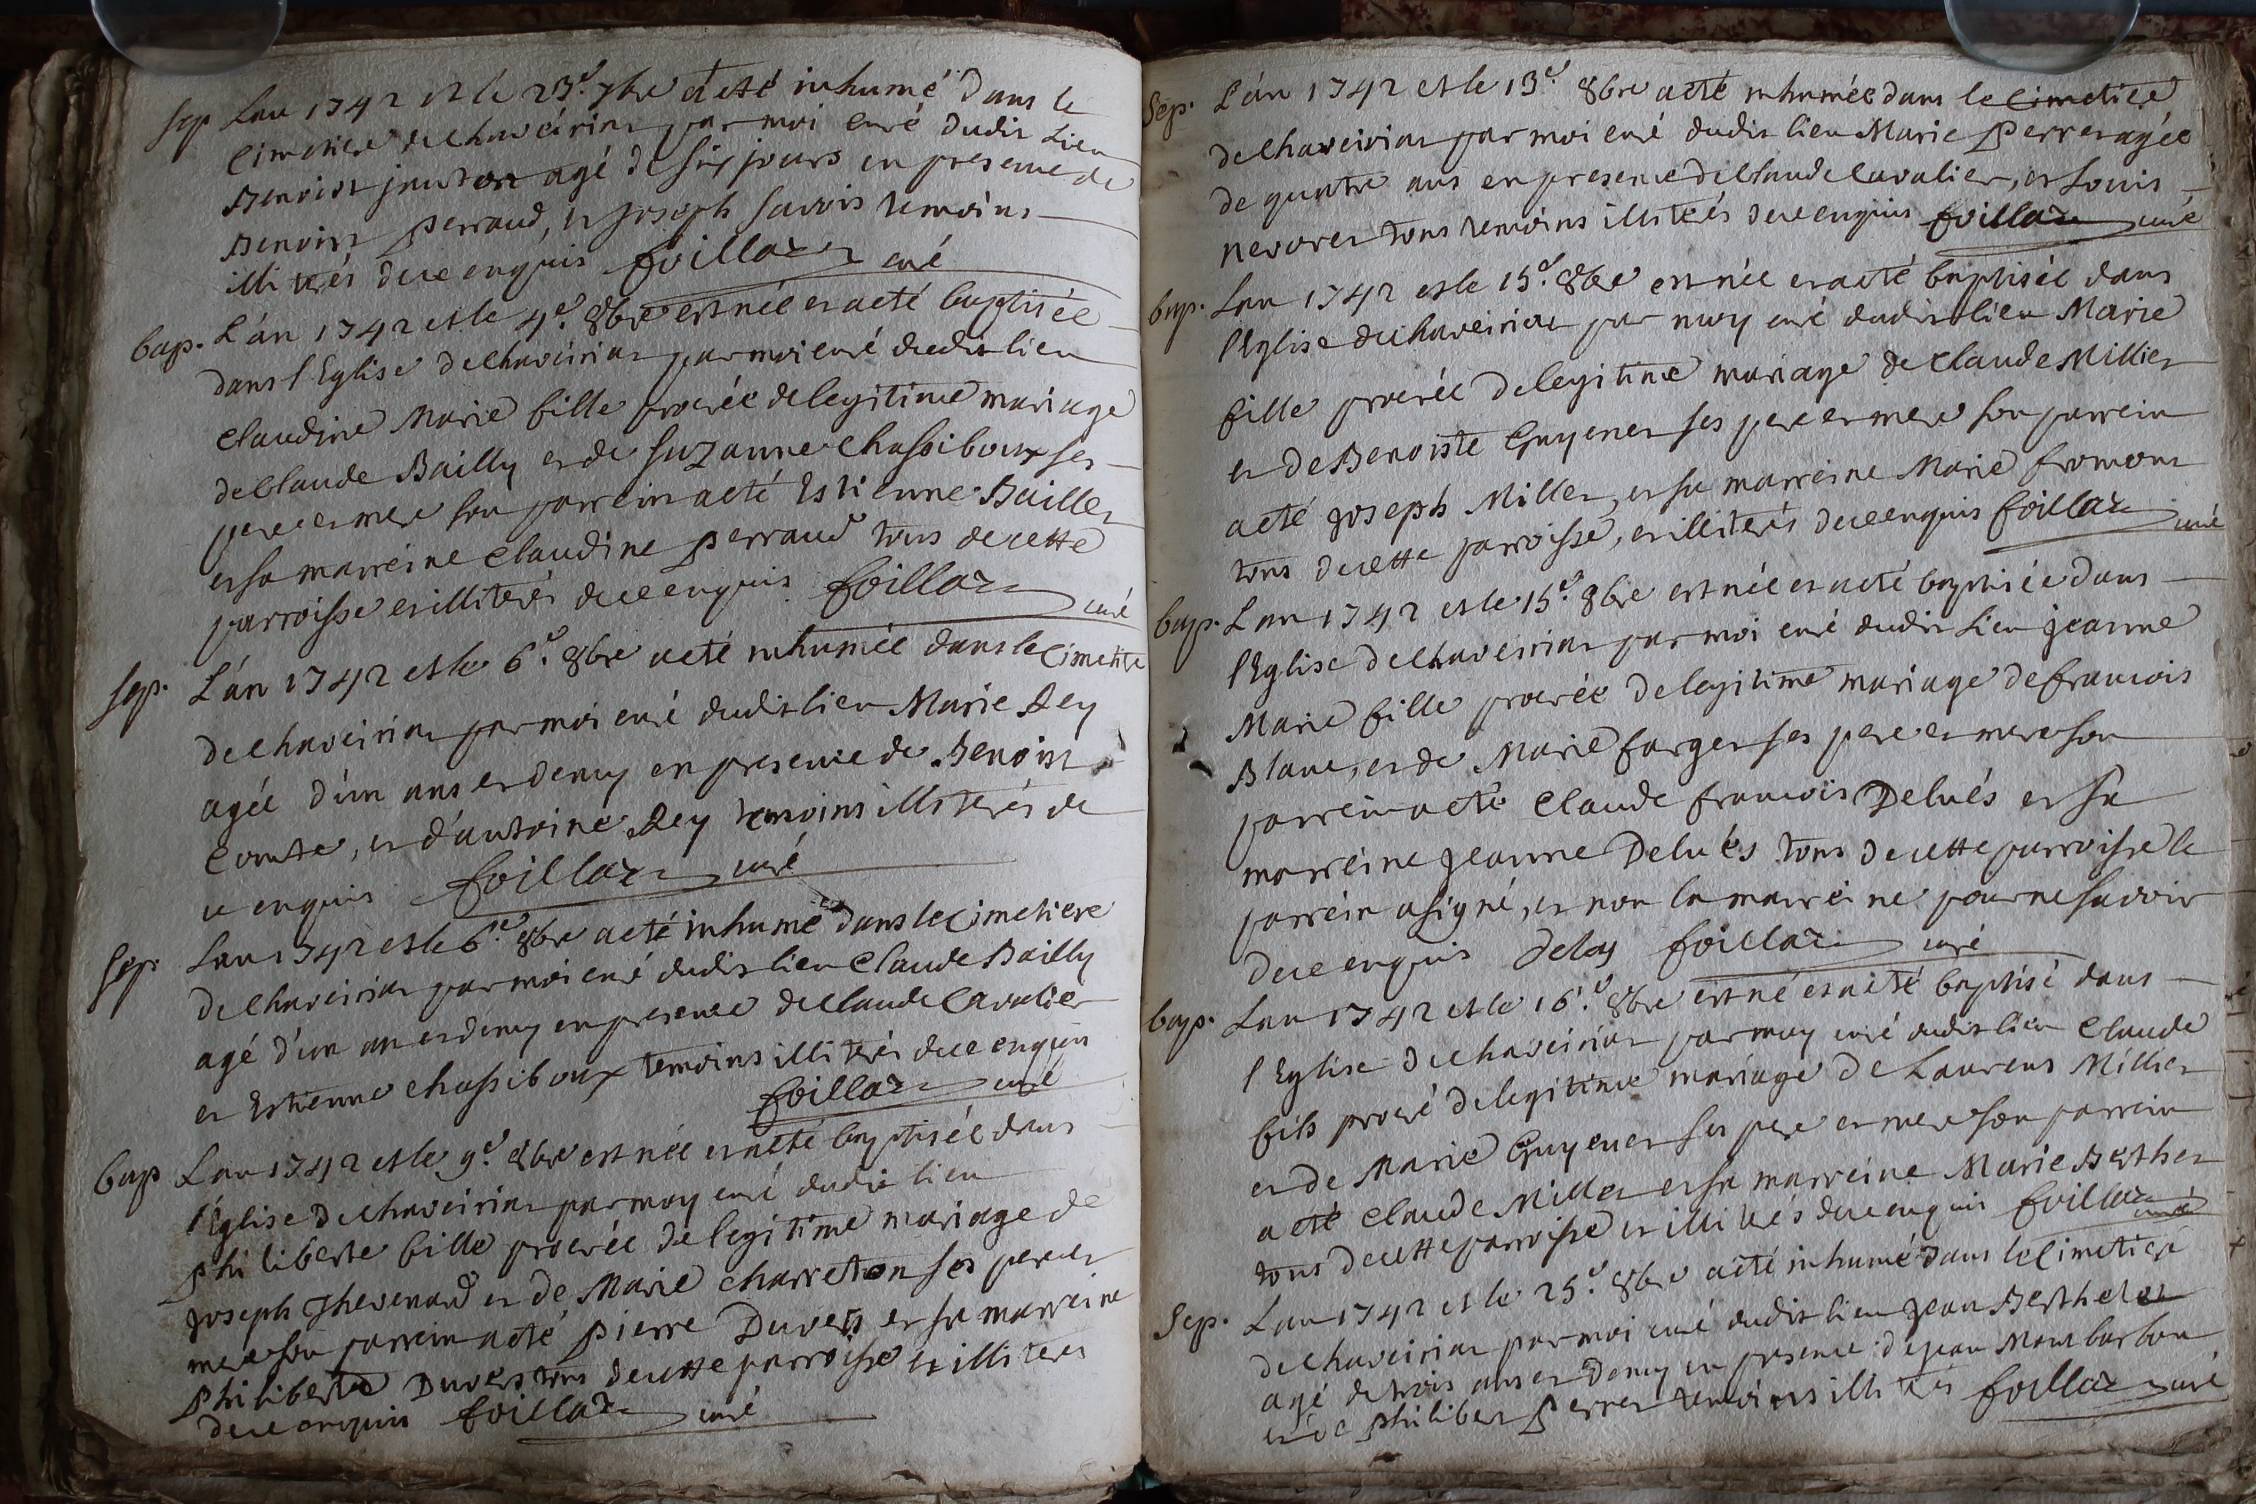 Sep. Lan 1742 et le 23.e 7bre a eté inhumé dans le
Cimetiere de Chaveirias par moi curé dudit Lieu
Benoist janton agé de six jours en presence de
Benoist Perraud, et Joseph savois temoins
illiterés de ce enquis foillaz curé
bap. L'an 1742 et le 4.e 8bre est née et a eté baptisée
dans l'Eglise de Chaveirias par moi curé dudit lieu
Claudine Marie fille procréé de legitime mariage
de Claude Bailly et de Suzanne Chassiboux ses
pere et mere son parrein a eté Estienne Baillet
et sa marreine Claudine Perraud tous de cette
parroisse et illiterés de ce enquis foillaz curé
Sep. L'an 1742 et le 6.e 8bre a eté inhumée dans le Cimetie
de Chaveirias par moi curé dudit lieu Marie Rey
agée d'un ans et demy en presence de Benoist
Comte, et d'antoine Rey temoins illiterés de
ce enquis foillaz curé
Sep. Lan 1742 et le 6.e 8bre a eté inhumé dans le Cimetiere
de Chaveirias par moi curé dudit lieu Claude Bailly
agé d'un an et demy en presence de Claude Cavalier
et Estienne Chassiboux temoins illiterés de ce enquis
foillaz curé
bap Lan 1742 et le 9.e 8bre est née et a eté baptisée dans
l'Eglise de Chaveirias par moy curé dudit lieu
Philiberte fille procréé de legitime mariage de
Joseph Thevenard et de Marie Charreton ses pere et
mere son parrein a eté Pierre Duvert et sa marreine
Philiberte Duvert tous de cette parroisse et illiterés
de ce enquis foillaz curé
Sep. L'an 1742 et le 13.e 8bre a eté inhumée dans le Cimetiere
de Chaveirias par moi curé dudit lieu Marie Perret agée
de quatre ans en presence de Claude Cavalier, et Louis
nevoret tous temoins illiterés de ce enquis foillaz curé
bap. Lan 1742 et le 15.e 8bre est née et a eté baptisée dans
l'Eglise de Chaveirias par moy curé dudit lieu Marie
fille procréé de legitime mariage de Claude Millier
et de Benoiste Guyenet ses pere et mere son parrein
a eté Joseph Millet, et sa marreine Marie fromont
tous de cette parroisse, et illiterés de ce enquis foillaz curé
bap. Lan 1742 et le 15.e 8bre est née et a eté baptisée dans
l'Eglise de Chaveirias par moi curé dudit Lieu Jeanne
Marie fille procréé de legitime mariage de francois
Blanc, et de Marie farget ses pere et mere son
parrein a eté Claude francois Delués et sa
marreine Jeanne Delués tous de cette parroisse le
parrein a signé, et non la marreine pour ne savoir
de ce enquis foillaz curé
bap. Lan 1742 et le 16.e 8bre est né et a eté baptisé dans
l'Eglise de Chaveirias par moy curé dudit lieu Claude
fils procréé de legitime mariage de Laurens Millier
et de Marie Guyenet ses pere et mere son parrein
a eté Claude Millet et sa marreine Marie Berthet
tous de cette parroisse et illiterés de ce enquis foillaz curé
Sep. Lan 1742 et le 25.e 8bre a eté inhumé dans le Cimetiere
de Chaveirias par moi curé dudit lieu Jean Berthelet
agé de trois ans et demy en presence de Jean Montbarbon
et de Philibert Perret temoins illiterés foillaz curé